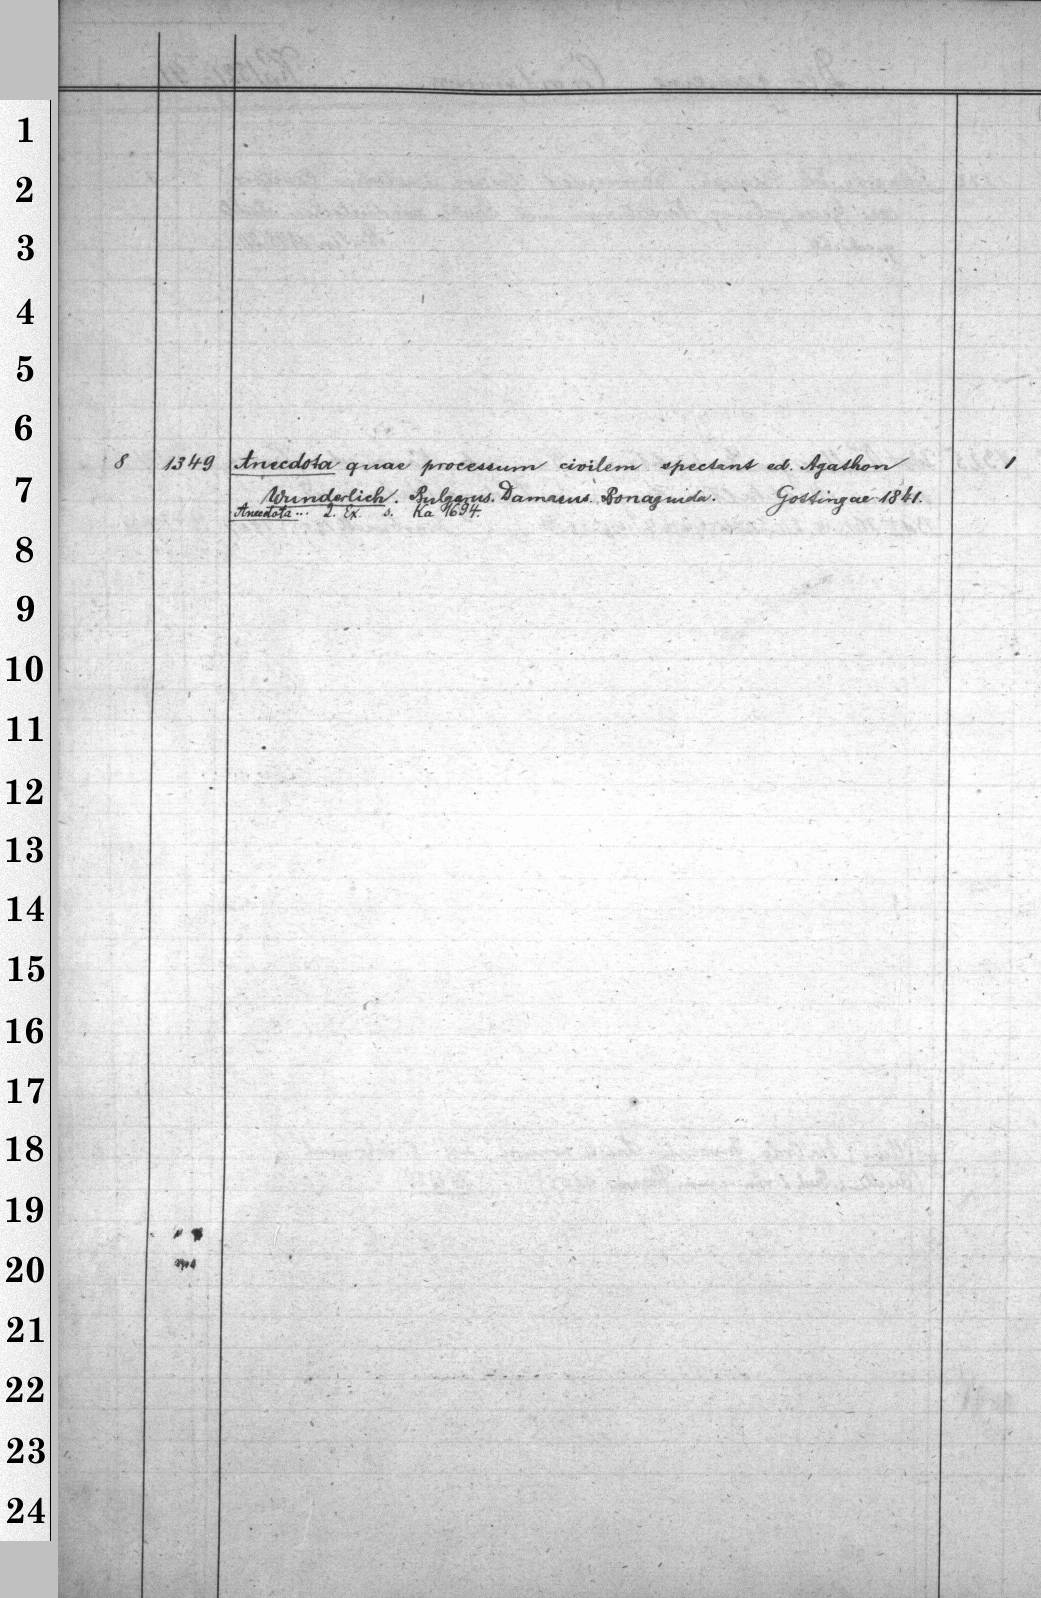 1
2
3
4
5
6
8 1349 Anecdota quae processum civilem spectant ed. Agathon 1
7
Wunderlich. Bulgarus. Damasus. Bonaguida. Gottingae 1841.
Anecdota... 2. Ex. s. Ka 1694.
8
9
10
11
12
13
14
15
16
17
18
19
20
21
22
23
24